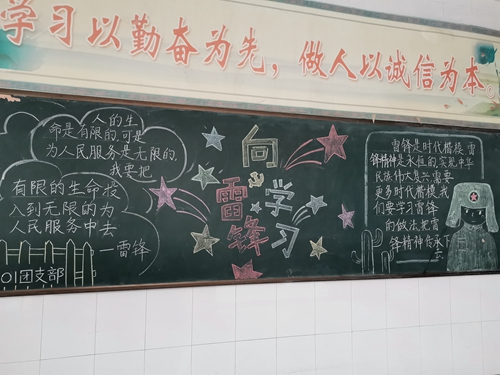 学习以勤奋为先，做人以诚信为本。
人的生
命是有限的,可是
为人民服务是无限的,
我要把
有限的生命投
入到无限的为
人民服务中去
—雷锋
01团支部
向
雷
锋
学
习
雷锋是时代楷模 雷
锋精神是永恒的,实现中华
民族伟大复兴需要
更多时代楷模我
们要学习雷锋
的做法,把雷
锋精神传承下
去